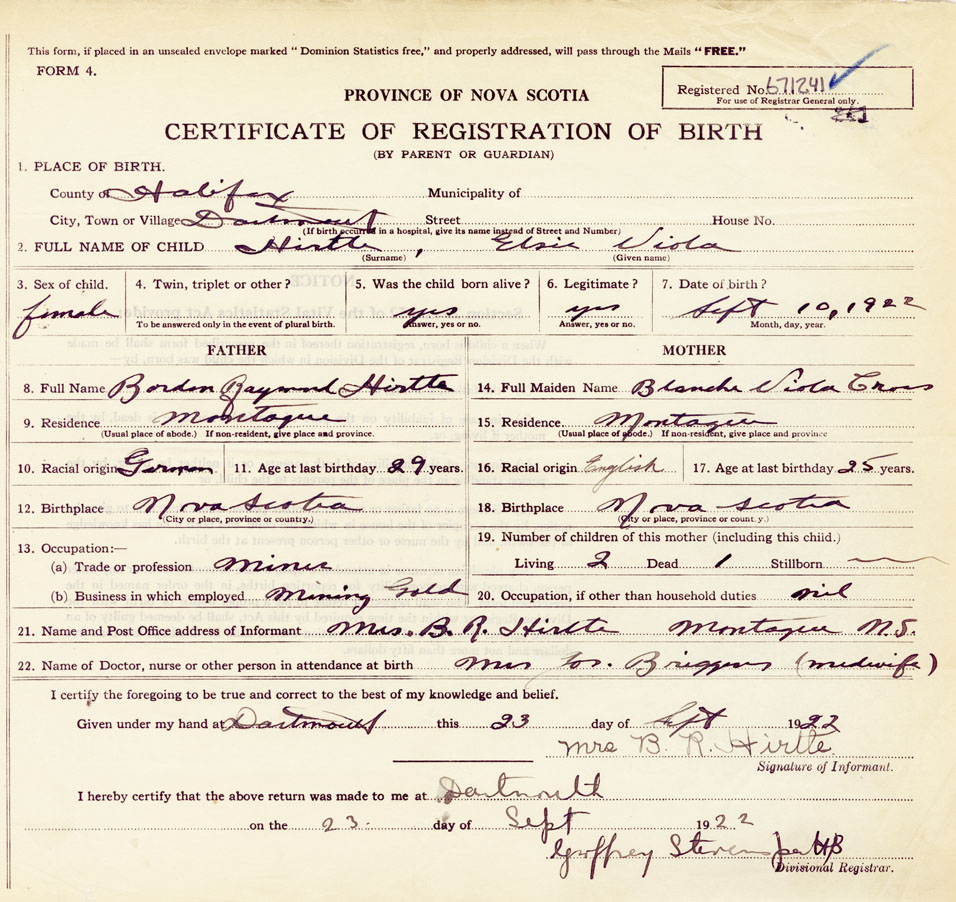 This form, if placed in an unsealed envelope marked "Dominion Statistics free," and properly addressed, will pass through the Mails "FREE."
FORM 4.
Registered No. 671241
For use of Registrar General only.
PROVINCE OF NOVA SCOTIA
CERTIFICATE OF REGISTRATION OF BIRTH
(BY PARENT OR GUARDIAN)
1. PLACE OF BIRTH.
County of Halifax Municipality of
City, Town or Village Dartmouth Street House No.
(If birth occurred in a hospital, give its name instead of Street and Number)
2. FULL NAME OF CHILD Hirtle, Elsie Viola
(Surname) (Given name)
3. Sex of child. 4. Twin, triplet or other? 5. Was the child born alive? 6. Legitimate? 7. Date of birth?
female yes yes Sept 10, 1922
To be answered only in the event of plural birth. Answer, yes or no. Answer, yes or no. Month, day, year.
FATHER MOTHER
8. Full Name Borden Raymond Hirtle 14. Full Maiden Name Blanche Viola Cross
9. Residence Montague 15. Residence. Montague
(Usual place of abode.) If non-resident, give place and province. (Usual place of abode.) If non-resident, give place and province
10. Racial origin German 11. Age at last birthday 29 years. 16. Racial origin English 17. Age at last birthday 25 years.
12. Birthplace Nova Scotia 18. Birthplace Nova Scotia
(City or place, province or country.) (City or place, province or county.)
13. Occupation:— 19. Number of children of this mother (including this child.)
(a) Trade or profession Miner Living 2 Dead 1 Stillborn
(b) Business in which employed Mining Gold 20. Occupation, if other than household duties nil
21. Name and Post Office address of Informant Mrs. B. R. Hirtle Montague N.S.
22. Name of Doctor, nurse or other person in attendance at birth Mrs (midwife)
I certify the foregoing to be true and correct to the best of my knowledge and belief.
Given under my hand at Dartmouth this 23 day of Sept 1922
Mrs B. R. Hirtle.
Signature of Informant.
I hereby certify that the above return was made to me at Dartmouth
on the 23. day of Sept 1922
Geoffrey Stevens per HB
Divisional Registrar.